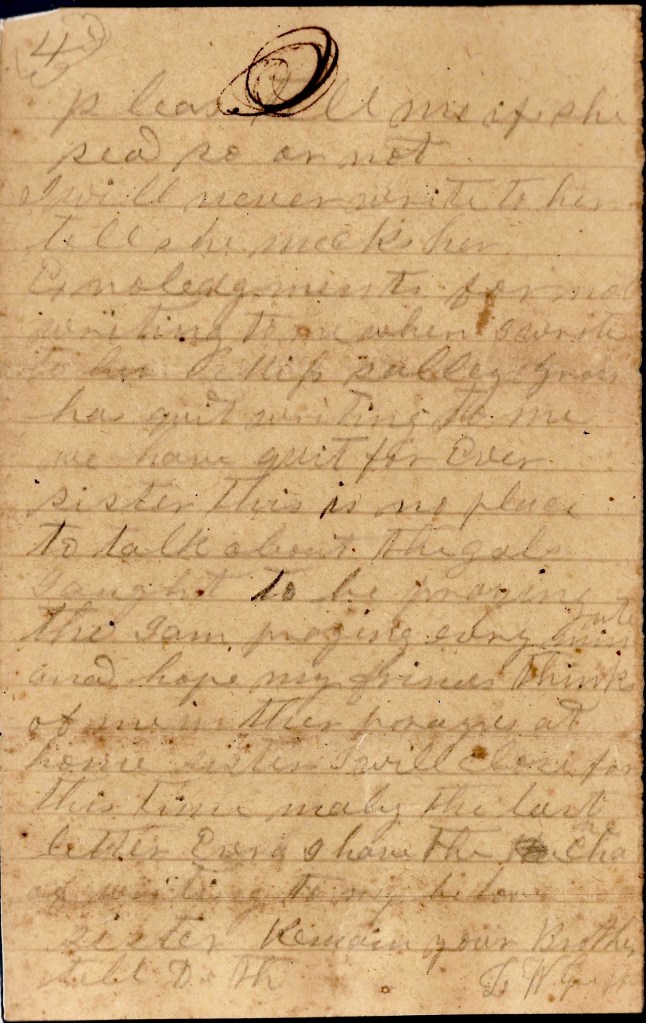 4
pleas tell me if she
sed so or not
I will never write to her
tell she meeks her
Ecnoledgments for not
writing to me when I wrote
to her Miss salley
has quit writing to me
we have quit for Ever
sister this is no place
to talk about the gals
I aught to be praying
the I am praying evry
and hope my friends thinks
of me in ther prayges at
home sister I will close for
this time maby the last
letter Ever I have the cha
of writing to my belove
sister Remain your Brother
tell D